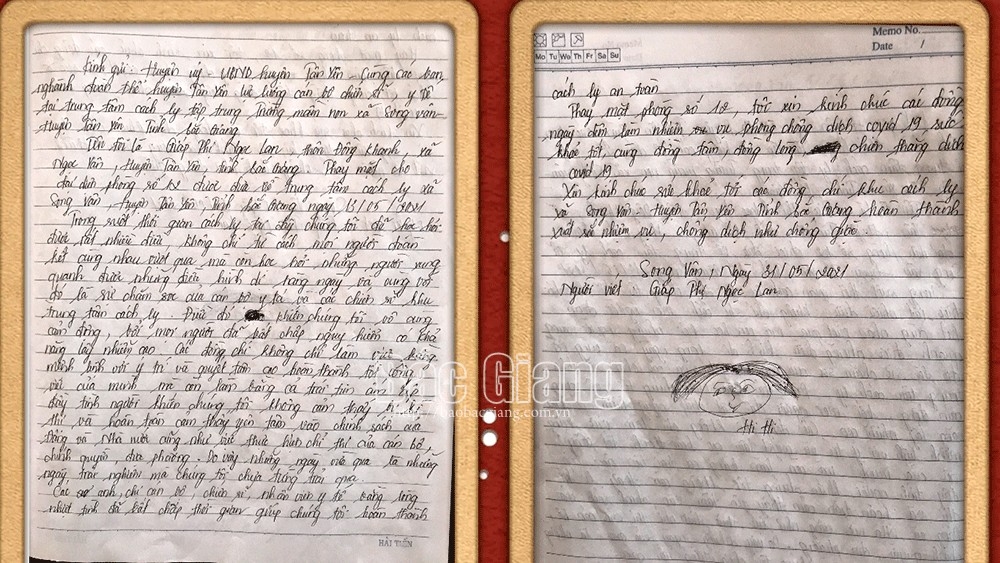 Kính gửi: Huyện ủy - UBND huyện Tân Yên - Cùng các ban
nghành đoàn thể huyện Tân Yên lực lượng cán bộ chiến sĩ y tế
tại trung tâm cách ly tập trung Trường mầm non xã Song Vân
Huyện Tân Yên - Tỉnh Bắc Giang
Tên tôi là: Giáp Thị Ngọc Lan, thôn Đồng Khanh, xã
Ngọc Vân, Huyện Tân Yên, tỉnh Bắc Giang. Thay mặt cho
đại diện phòng số 12 được đưa về trung tâm cách ly xã
Song Vân, Huyện Tân Yên - Tỉnh Bắc Giang ngày 13/05/2021
Trong suốt thời gian cách ly tại đây chúng tôi đã học hỏi
được rất nhiều điều, không chỉ từ cách mọi người đoàn
kết cùng nhau vượt qua mà còn học hỏi những người xung
quanh được những điều bình dị hàng ngày và cùng với
đó là sự chăm sóc của cán bộ y tá và các chiến sĩ khu
trung tâm cách ly. Điều đó khiến chúng tôi vô cùng
cảm động, bởi mọi người đã bất chấp nguy hiểm có khả
năng lây nhiễm cao. Các đồng chí không chỉ làm việc bằng
mệnh lệnh với ý trí và quyết tâm cao hoàn thành tốt công
vụ của mình mà còn làm bằng cả trái tim ấm áp
đầy tình người khiến chúng tôi không cảm thấy bị kì
thị và hoàn toàn cảm thấy yên tâm vào chính sách của
Đảng và Nhà nước cũng như việc thực hiện chỉ thị của cán bộ,
chính quyền, địa phương. Do vậy những ngày vừa qua là những
ngày trải nghiệm mà chúng tôi chưa từng trải qua.
Các anh, chị cán bộ, chiến sĩ, nhân viên y tế bằng lòng
nhiệt tình đã bất chấp thời gian giúp chúng tôi hoàn thành
HẢI TIẾN
Memo No.
Date /
Mo Tu We Th Fr Sa Su
cách ly an toàn
Thay mặt phòng số 12, tôi xin kính chúc các đồng
ngày đêm làm nhiệm vụ phòng chống dịch covid 19 sức
khoẻ tốt, cùng đồng tâm, đồng lòng chiến thắng dịch
covid 19
Xin kính chúc sức khoẻ tới các đồng chí khu cách ly
xã Song Vân - Huyện Tân Yên - Tỉnh Bắc Giang hoàn thành
xuất sắc nhiệm vụ, chống dịch như chống giặc
Song Vân, Ngày 31/05/2021
Người viết: Giáp Thị Ngọc Lan
Hi Hi
Bắc Giang
http://baobacgiang.com.vn